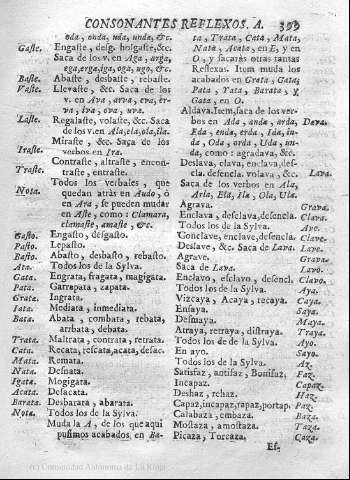 CONSONANTES REFLEXOS. A. 399
oda, onda, uda, unda, &c.
Gaste. Engaste, desg. holgaste, &c.
Saca de los v. en Aga, arga,
ega, erga, iga, oga, ugo, &c.
Baste. Abaste, desbaste, rebaste.
Vaste. Llevaste, &c. Saca de los
v. en Ava, arva, eva, er-
va, iva, ova, uva.
Laste. Regalaste, volaste, &c. Saca
de los v. en Ala, ela, ola, ila.
Iraste. Miraste, &c. Saca de los
verbos en Ira.
Traste. Contraste, altraste, encon-
traste, entraste.
Nota. Todos los verbales, que
quedan atrás en Audo, ò
en Ara, se pueden mudar
en Aste, como: Clamara,
clamaste, amaste, &c.
Gasto. Engasto, desgasto.
Pasto. Lepasto.
Basto. Abasto, desbasto, rebasto.
Ata. Todos los de la Sylva.
Gata. Engrata, fragata, magigata.
Pata. Garrapata, zapata.
Grata. Ingrata.
Iata. Mediata, inmediata.
Bata. Abata, combata, rebata,
arrbata, debata.
Trata. Maltrata, contrata, retrata.
Cata. Recata, rescata, acata, desac.
Mata. Remata.
Nata. Desnata.
Igata. Mogigata.
Acata. Desacata.
Barata. Desbarara, abarata.
Nota. Todos los de la Sylva.
Muda la A, de los que aqui
pusimos acabados en Ba-
ta, Trata, Cata, Mata,
Nata, Acata, en E, y en
O, y sacarás otras tantas
Reflexas. Item muda los
acabados en Grata, Gata,
Pata, Tata, Barata, y
Gata, en O.
Aldava. Item, saca de los ver-
bos en Ada, anda, arda, Dava.
Eda, enda, erda, Ida, in-
da, Oda, orda, Uda, un-
da, como: agradava, &c.
Deslava, clava, enclava, des-
cla. desencla. volava, &c. Lava.
Saca de los verbos en Ala,
Arla, Ela, Ila, Ola, Ula.
Agrava. Grava.
Enclava, desclava, desencla. Clava.
Todos los de la Sylva. Ave.
Conclave, enclave, desenclave. Clave.
Deslave, &c. Saca de Lava. Lave.
Agrave. Grave.
Saca de Lava. Lavo.
Enclavo, esclavo, desencl. Clavo.
Todos los de la Sylva. Aya.
Vizcaya, Acaya, recaya. Caya.
Ensaya. Saya.
Desmaya. Maya.
Atraya, retraya, distraya. Traya.
Todos los de de la Sylva. Ayo.
En ayo. Sayo.
Todos los de la Sylva. Az.
Satisfaz, antifaz, Bonifaz. Faz.
Incapaz. Capaz.
Deshaz, rehaz. Haz.
Capaz, incapaz, rapaz, portap. Paz.
Calabaza, embaza. Baza.
Mostaza, amostaza. Taza.
Picaza, Torcaza. Caza.
Es-
(c) Comunidad Autónoma de La Rioja